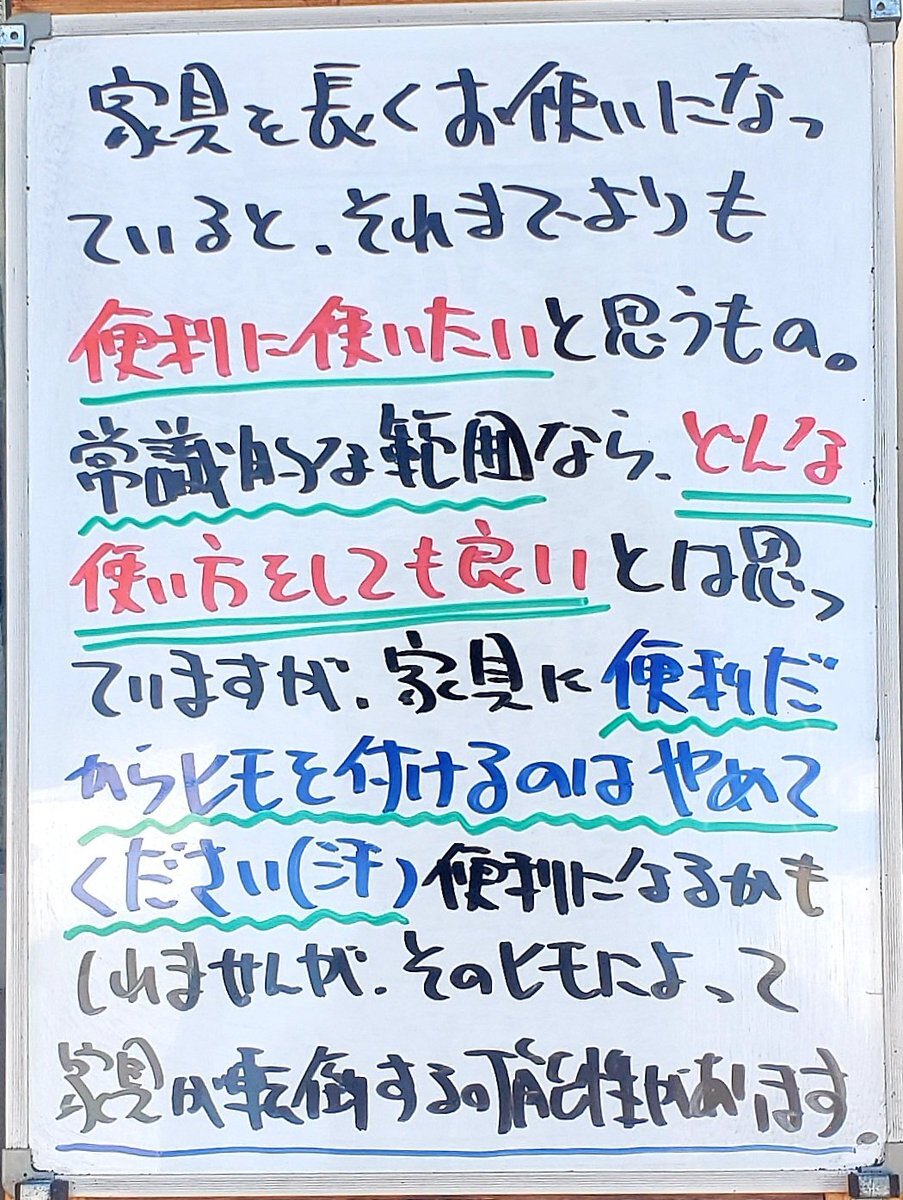 家具を長くお使いになっ
ていると、それまでよりも
便利に使いたいと思うもの。
常識的な範囲なら、どんな
使い方をしても良いとは思っ
ていますが、家具に便利だ
からヒモを付けるのはやめて
ください(汗)便利になるかも
しれませんが、そのヒモによって
家具が転倒する可能性があります。